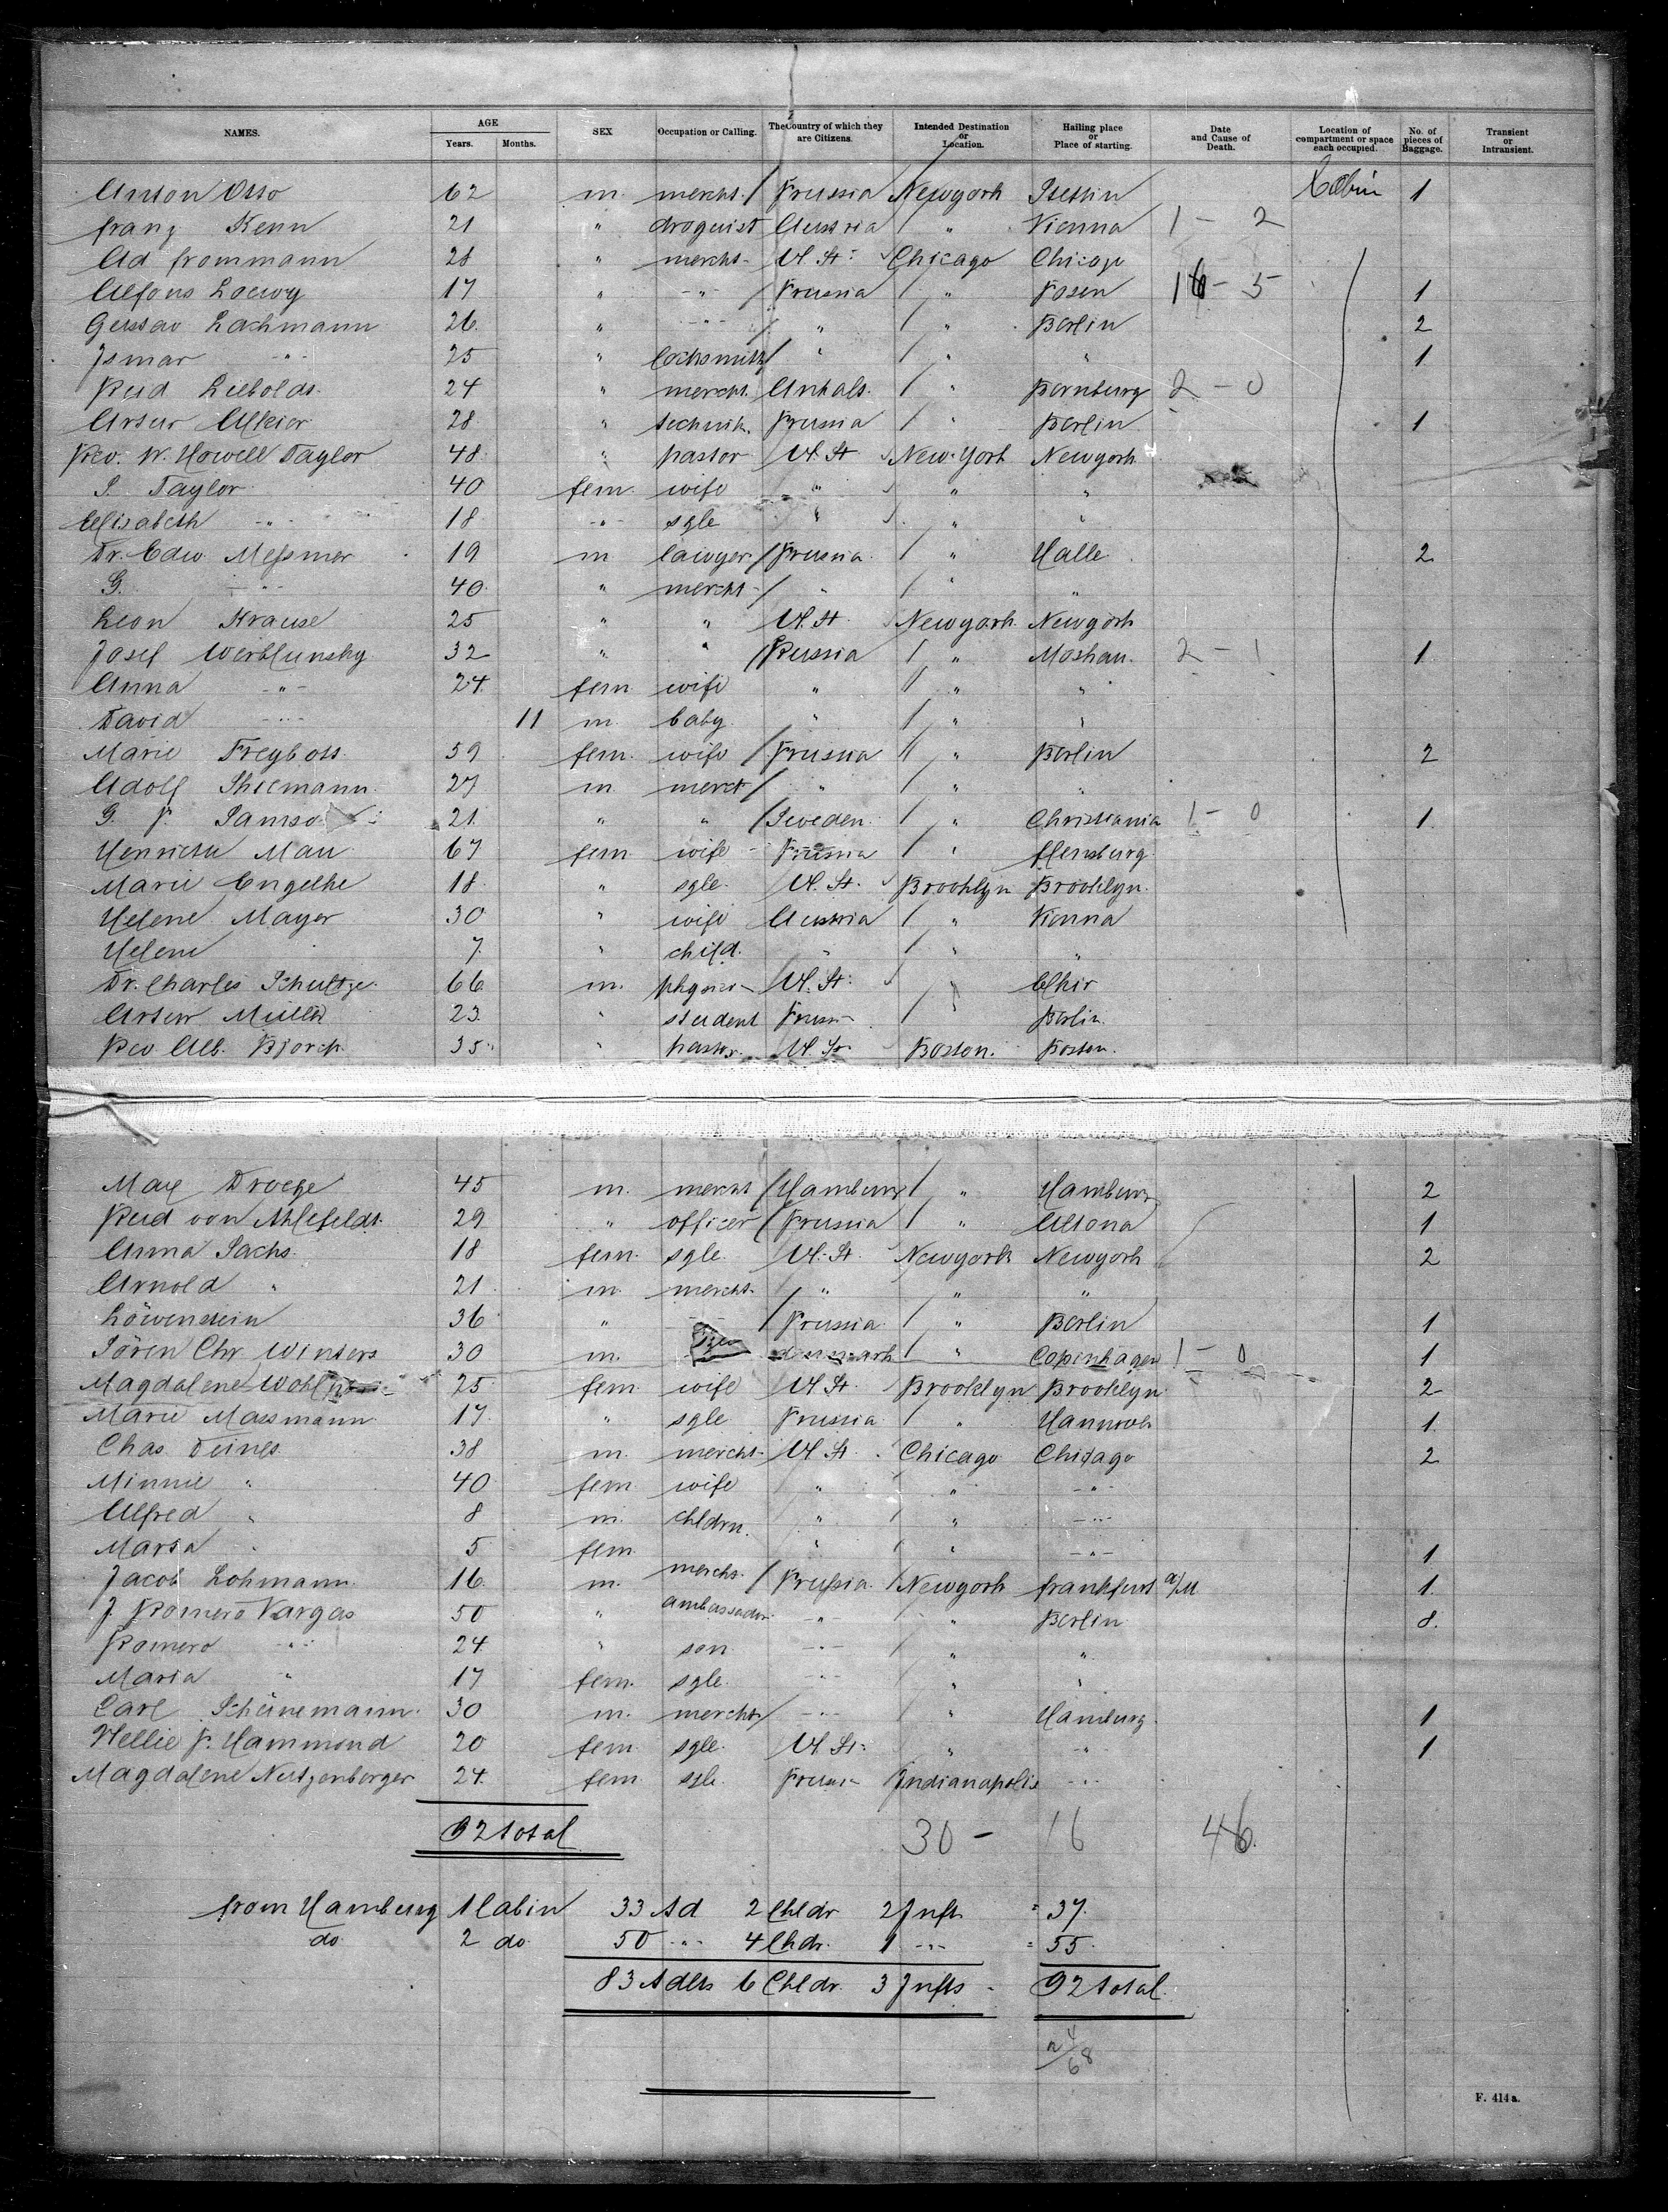 NAMES. AGE Years. Months. SEX Occupation or Calling. The Country of which they are Citizens. Intended Destination or Location. Hailing place or Place of starting. Date and Cause of Death. Location of compartment or space each occupied. No. of pieces of Baggage. Transient or Intransient.
Anton Otto 62 m. mercht. / Prussia Newyork Stettin Cabin 1
franz Kenn 21 " droguist Austria " Vienna 1 - 2
Ad frommann 28 " mercht- U. St. Chicago Chicago
Alfons Loewy 17 " -"- / Prussia / " Posen 16 - 5 1
Gustav Lachmann 26. " -"- / " / " Berlin 2
Ismar -"- 25 " locksmith / " / " " 1
Rud Lieboldt. 24 " mercht. Anhalt. / " Bernburg 2 - 0
Artur Alkier 28. " technik. Prussia / " Berlin 1
Rev. W. Howell Taylor 48. " pastor U. St New-York Newyork
S. Taylor 40 fem. wife " " "
Elisabeth -"- 18. -"- sgle " " "
Dr. Edw. Meßmer 19 m lawyer / Prussia. / " Halle 2
G. -"- 40. " mercht- / " / " "
Leon Krause 25 " " U. St. Newyork. Newyork
Josef Werblunsky 32 " " / Russia / " Moskau. 2 - 1 1
Anna -"- 24. fem wife " / " "
David -"- 11 m. baby. " / " "
Marie Freybott. 59 fem. wife / Prussia // " Berlin 2
Adolf Thiemann. 27 m merct / " / " "
G. P. 21. " " / Sweden. / " Christiania 1 - 0 1
Henrietta Mau 67 fem wife - Prussia / " flensburg
Marie Engelke 18. " sgle. U. St. Brooklyn Brooklyn.
Helene Mayer 30 " wife Austria / " Vienna
Helene 7. " child. " / " "
Dr. Charles Schultze. 66. m. physic- U. St. "
Artur Müller 23. " student Pruss- / " Berlin.
Rev Alb. Bjorck 35. " pastor. U. St. Boston. Boston.
Max Droege 45 m. mercht / Hamburg / " Hamburg 2
Rud von Ahlefeldt. 29 " officer / Prussia / " Altona 1
Anna Sachs. 18 fem. sgle. U. St. Newyork Newyork 2
Arnold " 21. m. mercht. " " "
Löwenstein 36 " / Prussia / " Berlin 1
Sören Chr. Winters 30 m. denmark / " Copenhagen 1 - 0 1
Magdalene 25. fem. wife U. St. Brooklyn Brooklyn 2
Marie Massmann 17. " sgle Prussia / " Hannover 1.
Chas. Deines 38 m. mercht- U. St. Chicago Chicago 2
Minnie " 40 fem wife " " -"-
Alfred " 8 m. chldrn. " " -"-
Marta " 5 fem. " " -"- 1.
Jacob Lohmann. 16. m. mercht. / Prußia. / Newyork frankfurt a/M 1.
J. Romero Vargas 50 " ambassador. -"- " Berlin 8.
Romero -"- 24. " son -"- / " "
Maria " 17 fem. sgle. -"- " "
Carl Schünemann. 30 m. mercht / -"- " Hamburg. 1
Nellie P. Hammond 20 fem sgle. U. St. " -"- 1
Magdalene Nutzenberger 24. fem sgle. Pruss- Indianapolis -"-
92 total 30 - 16 46.
from Hamburg 1 Cabin 33 Ad 2 Chldr 2 Inft. = 37.
do. 2 do. 50 -"- 4 Chdr. 1 -"- = 55.
83 Adlts 6 Chldr. 3 Infts - 92 total.
F. 414a.